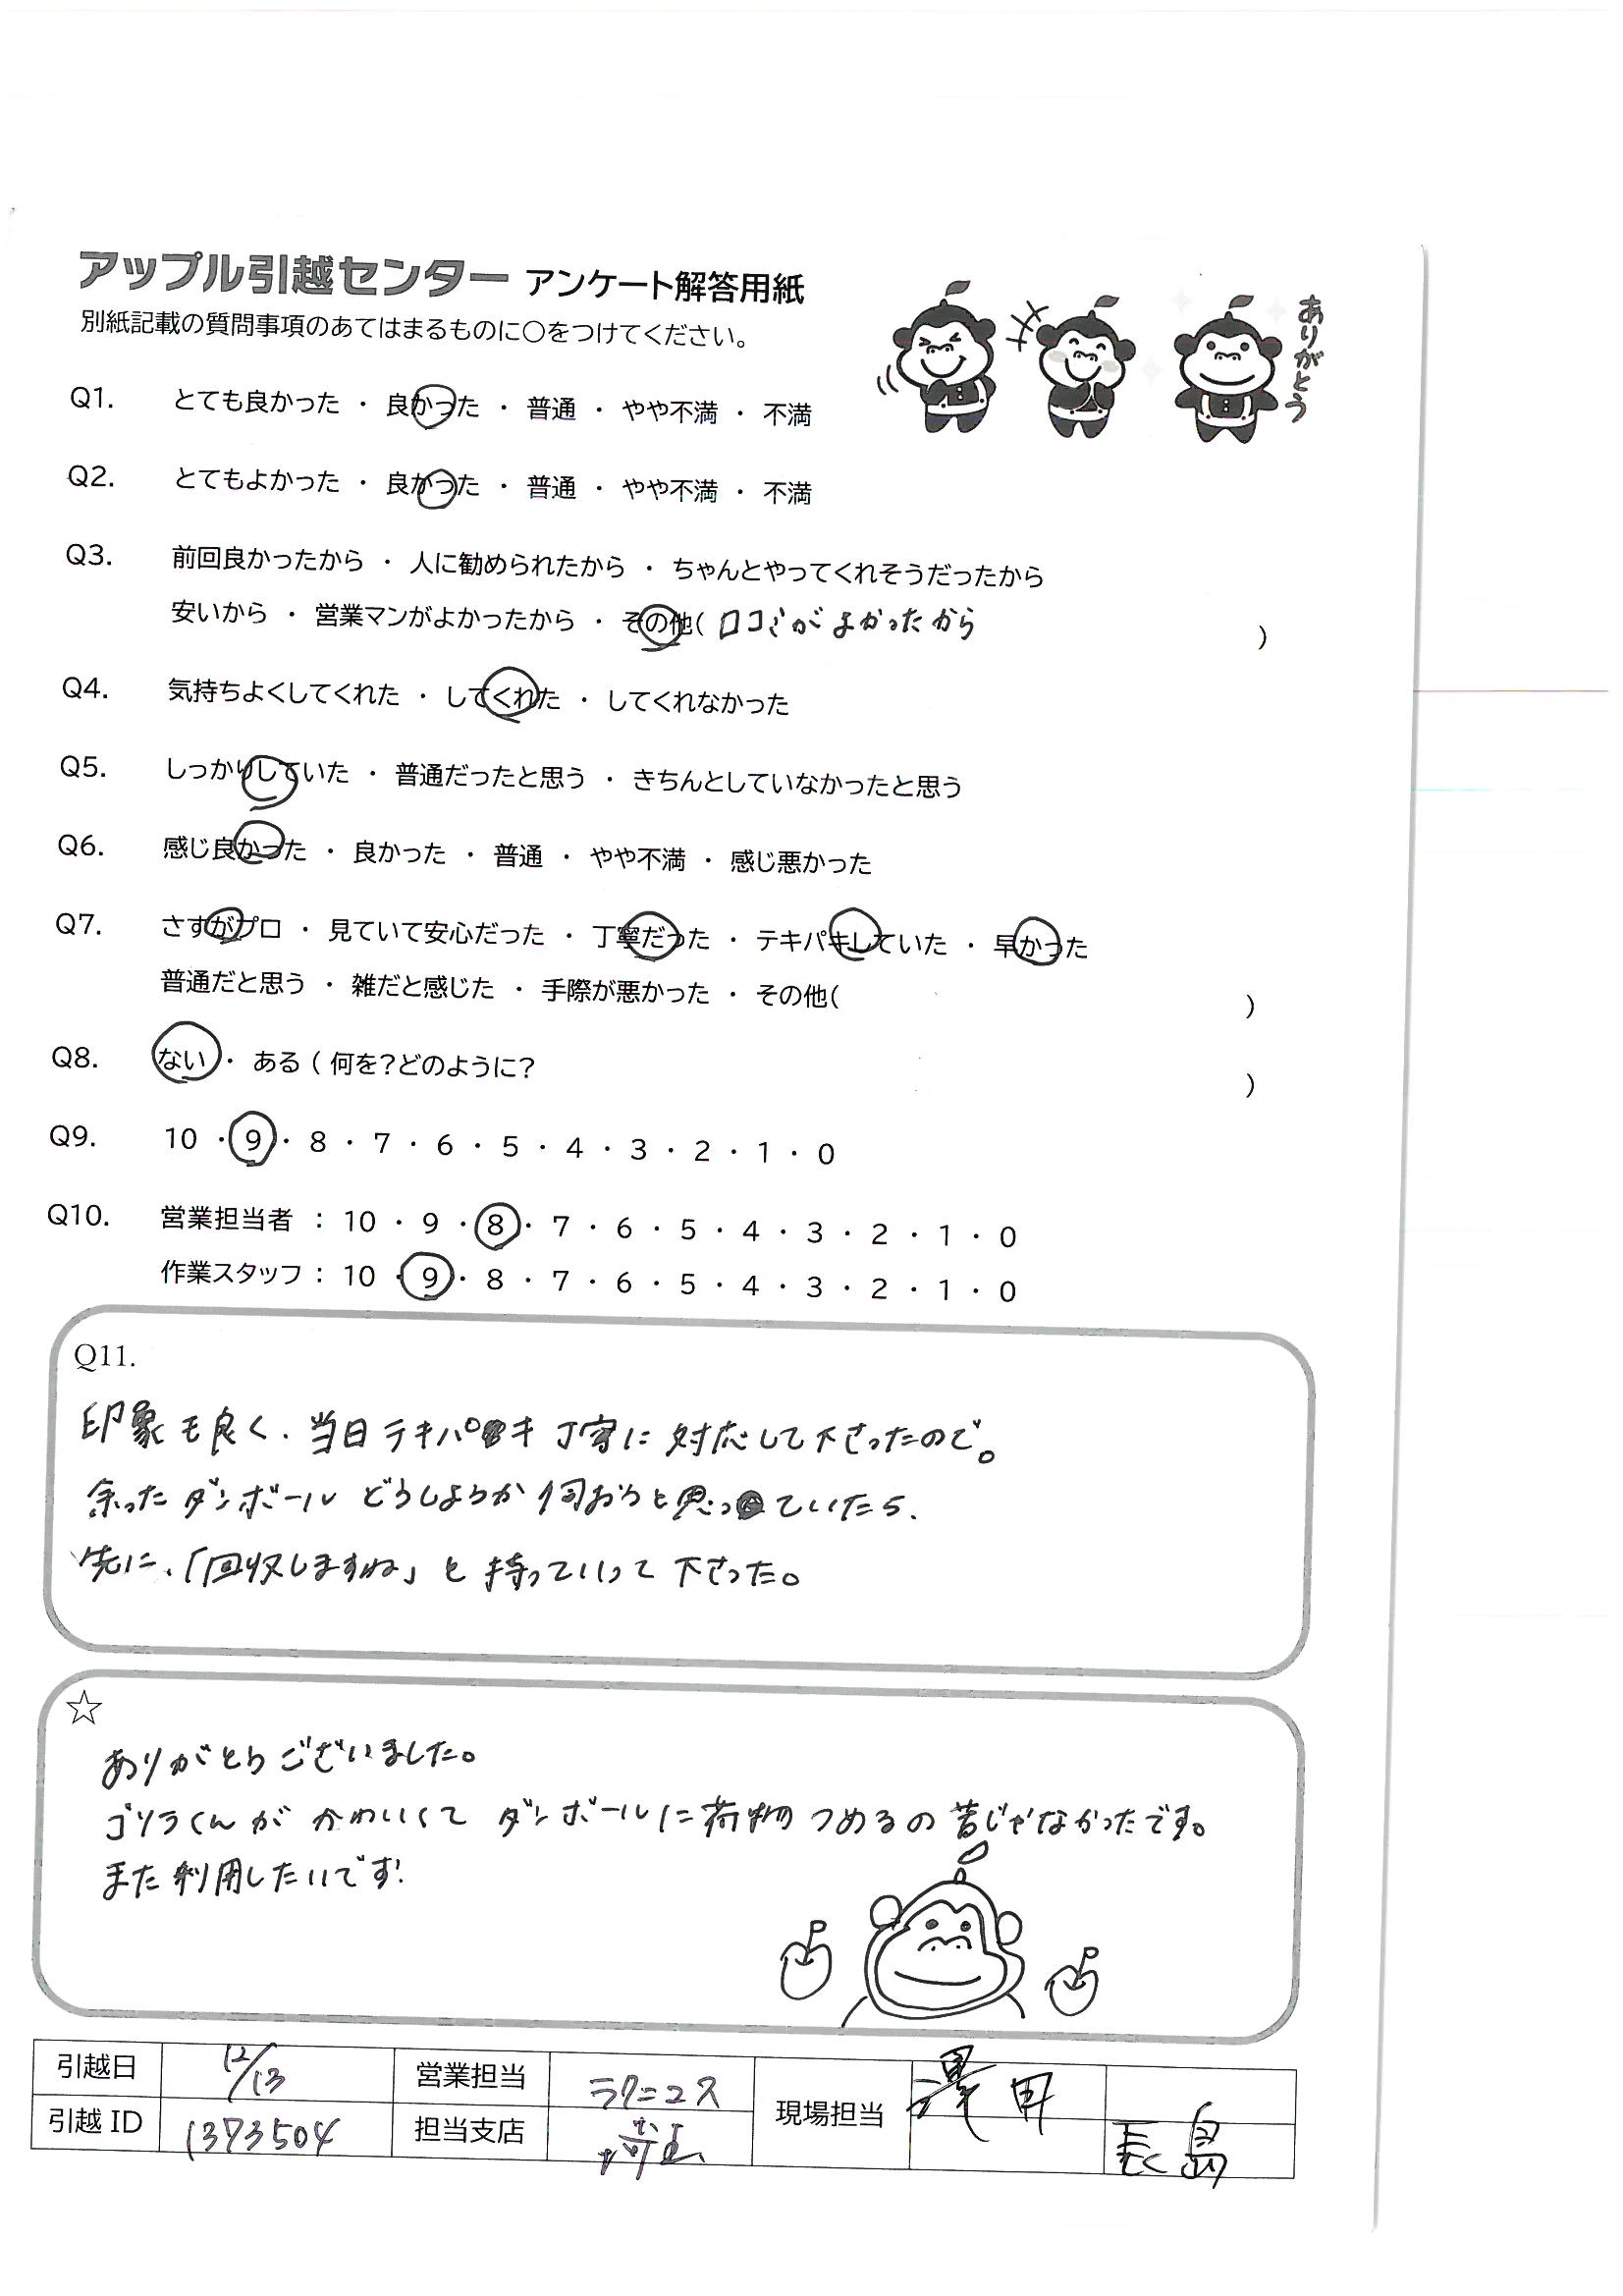 アップル引越センター アンケート解答用紙
別紙記載の質問事項のあてはまるものに○をつけてください。
ありがとう
Q1. とても良かった ・ 良かった ・ 普通 ・ やや不満 ・ 不満
Q2. とてもよかった ・ 良かった ・ 普通 ・ やや不満 ・ 不満
Q3. 前回良かったから ・ 人に勧められたから ・ ちゃんとやってくれそうだったから
安いから ・ 営業マンがよかったから ・ その他( 口コミがよかったから )
Q4. 気持ちよくしてくれた ・ してくれた ・ してくれなかった
Q5. しっかりしていた ・ 普通だったと思う ・ きちんとしていなかったと思う
Q6. 感じ良かった ・ 良かった ・ 普通 ・ やや不満 ・ 感じ悪かった
Q7. さすがプロ ・ 見ていて安心だった ・ 丁寧だった ・ テキパキしていた ・ 早かった
普通だと思う ・ 雑だと感じた ・ 手際が悪かった ・ その他( )
Q8. ない ・ ある ( 何を?どのように? )
Q9. 10 ・ 9 ・ 8 ・ 7 ・ 6 ・ 5 ・ 4 ・ 3 ・ 2 ・ 1 ・ 0
Q10. 営業担当者 : 10 ・ 9 ・ 8 ・ 7 ・ 6 ・ 5 ・ 4 ・ 3 ・ 2 ・ 1 ・ 0
作業スタッフ : 10 ・ 9 ・ 8 ・ 7 ・ 6 ・ 5 ・ 4 ・ 3 ・ 2 ・ 1 ・ 0
Q11.
印象も良く、当日テキパキ丁寧に対応して下さったので。
余ったダンボールどうしようか伺おうと思っていたら、
先に、「回収しますね」と持っていって下さった。
☆
ありがとうございました。
ゴリラくんがかわいくてダンボールに荷物つめるの苦じゃなかったです。
また利用したいです!
引越日 12/13 営業担当 ラクニコス 現場担当 澤田
引越 ID 1373504 担当支店 長島